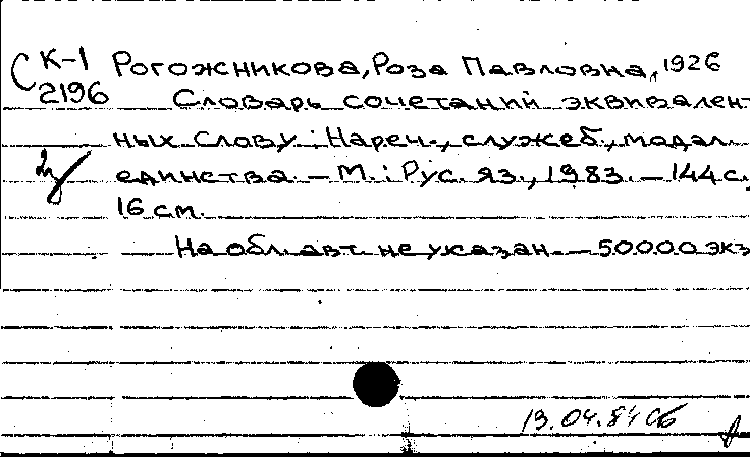 С К-1 Рогожникова, Роза Павловна, 1926
2196 Словарь сочетаний эквивалент
ных слову : Нареч., служеб., модал.
единства. – М. : Рус. яз., 1983. – 144 с.,
16 см.
На обл. авт. не указан. – 50000 экз
13.04.84 Сб